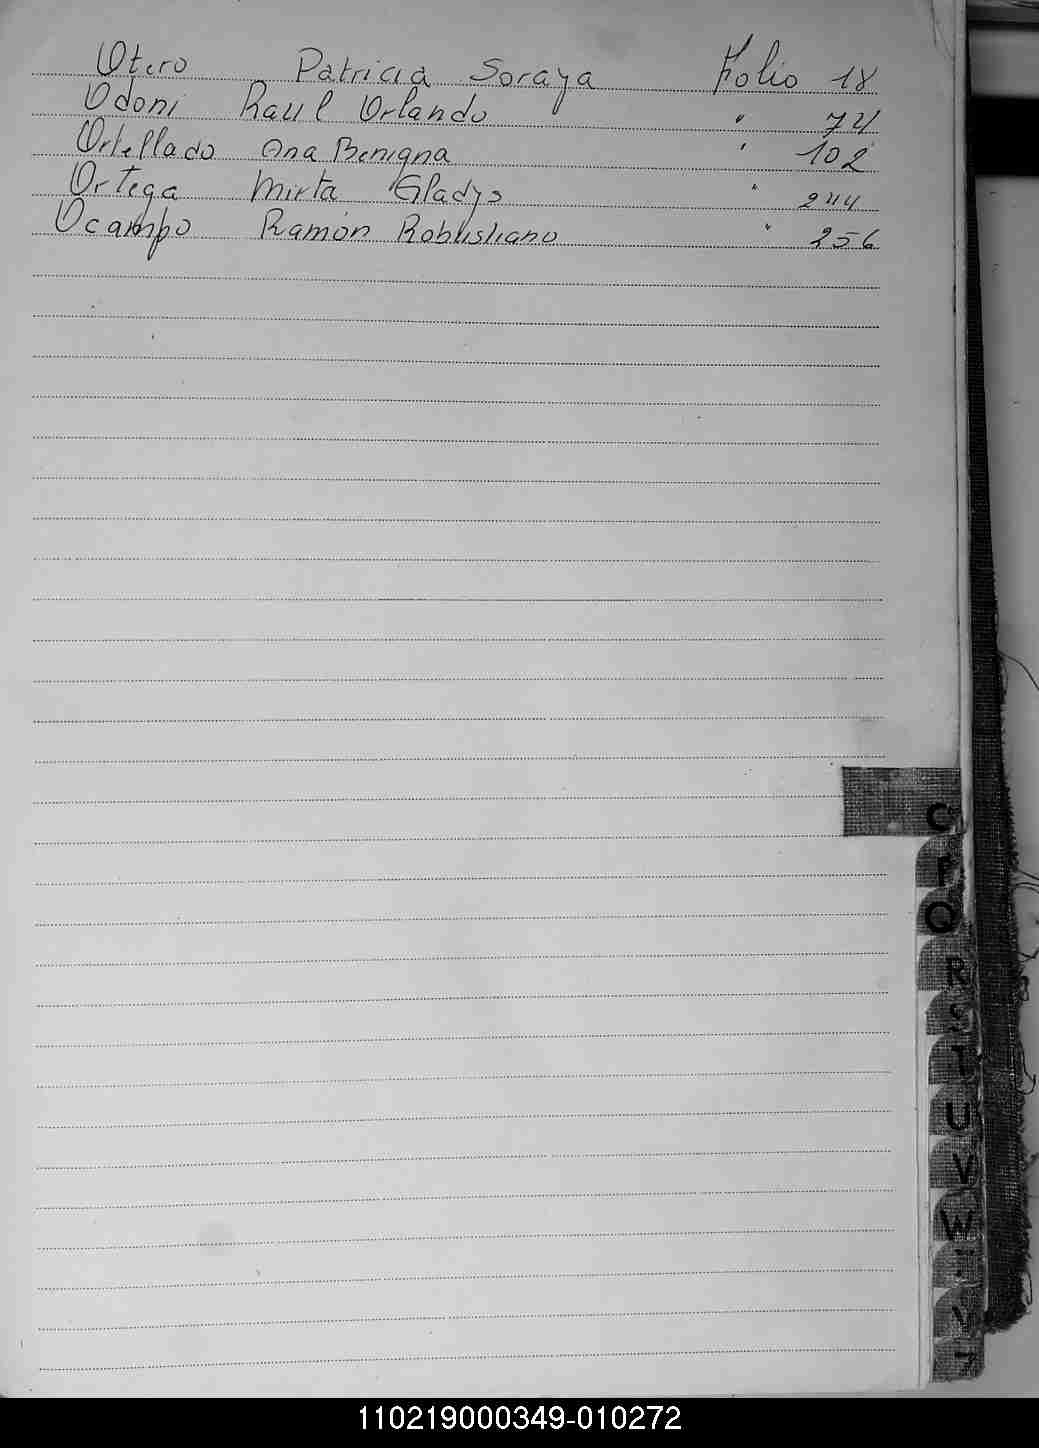 Otero Patricia Soraya Folio 18
Odoni Raul Orlando " 74
Ortellado Ana Benigna " 102
Ortega Mirta Gladys " 244
Ocampo Ramón Robustiano " 256
O
P
Q
R
S
T
U
V
W
Y
Z
110219000349-010272